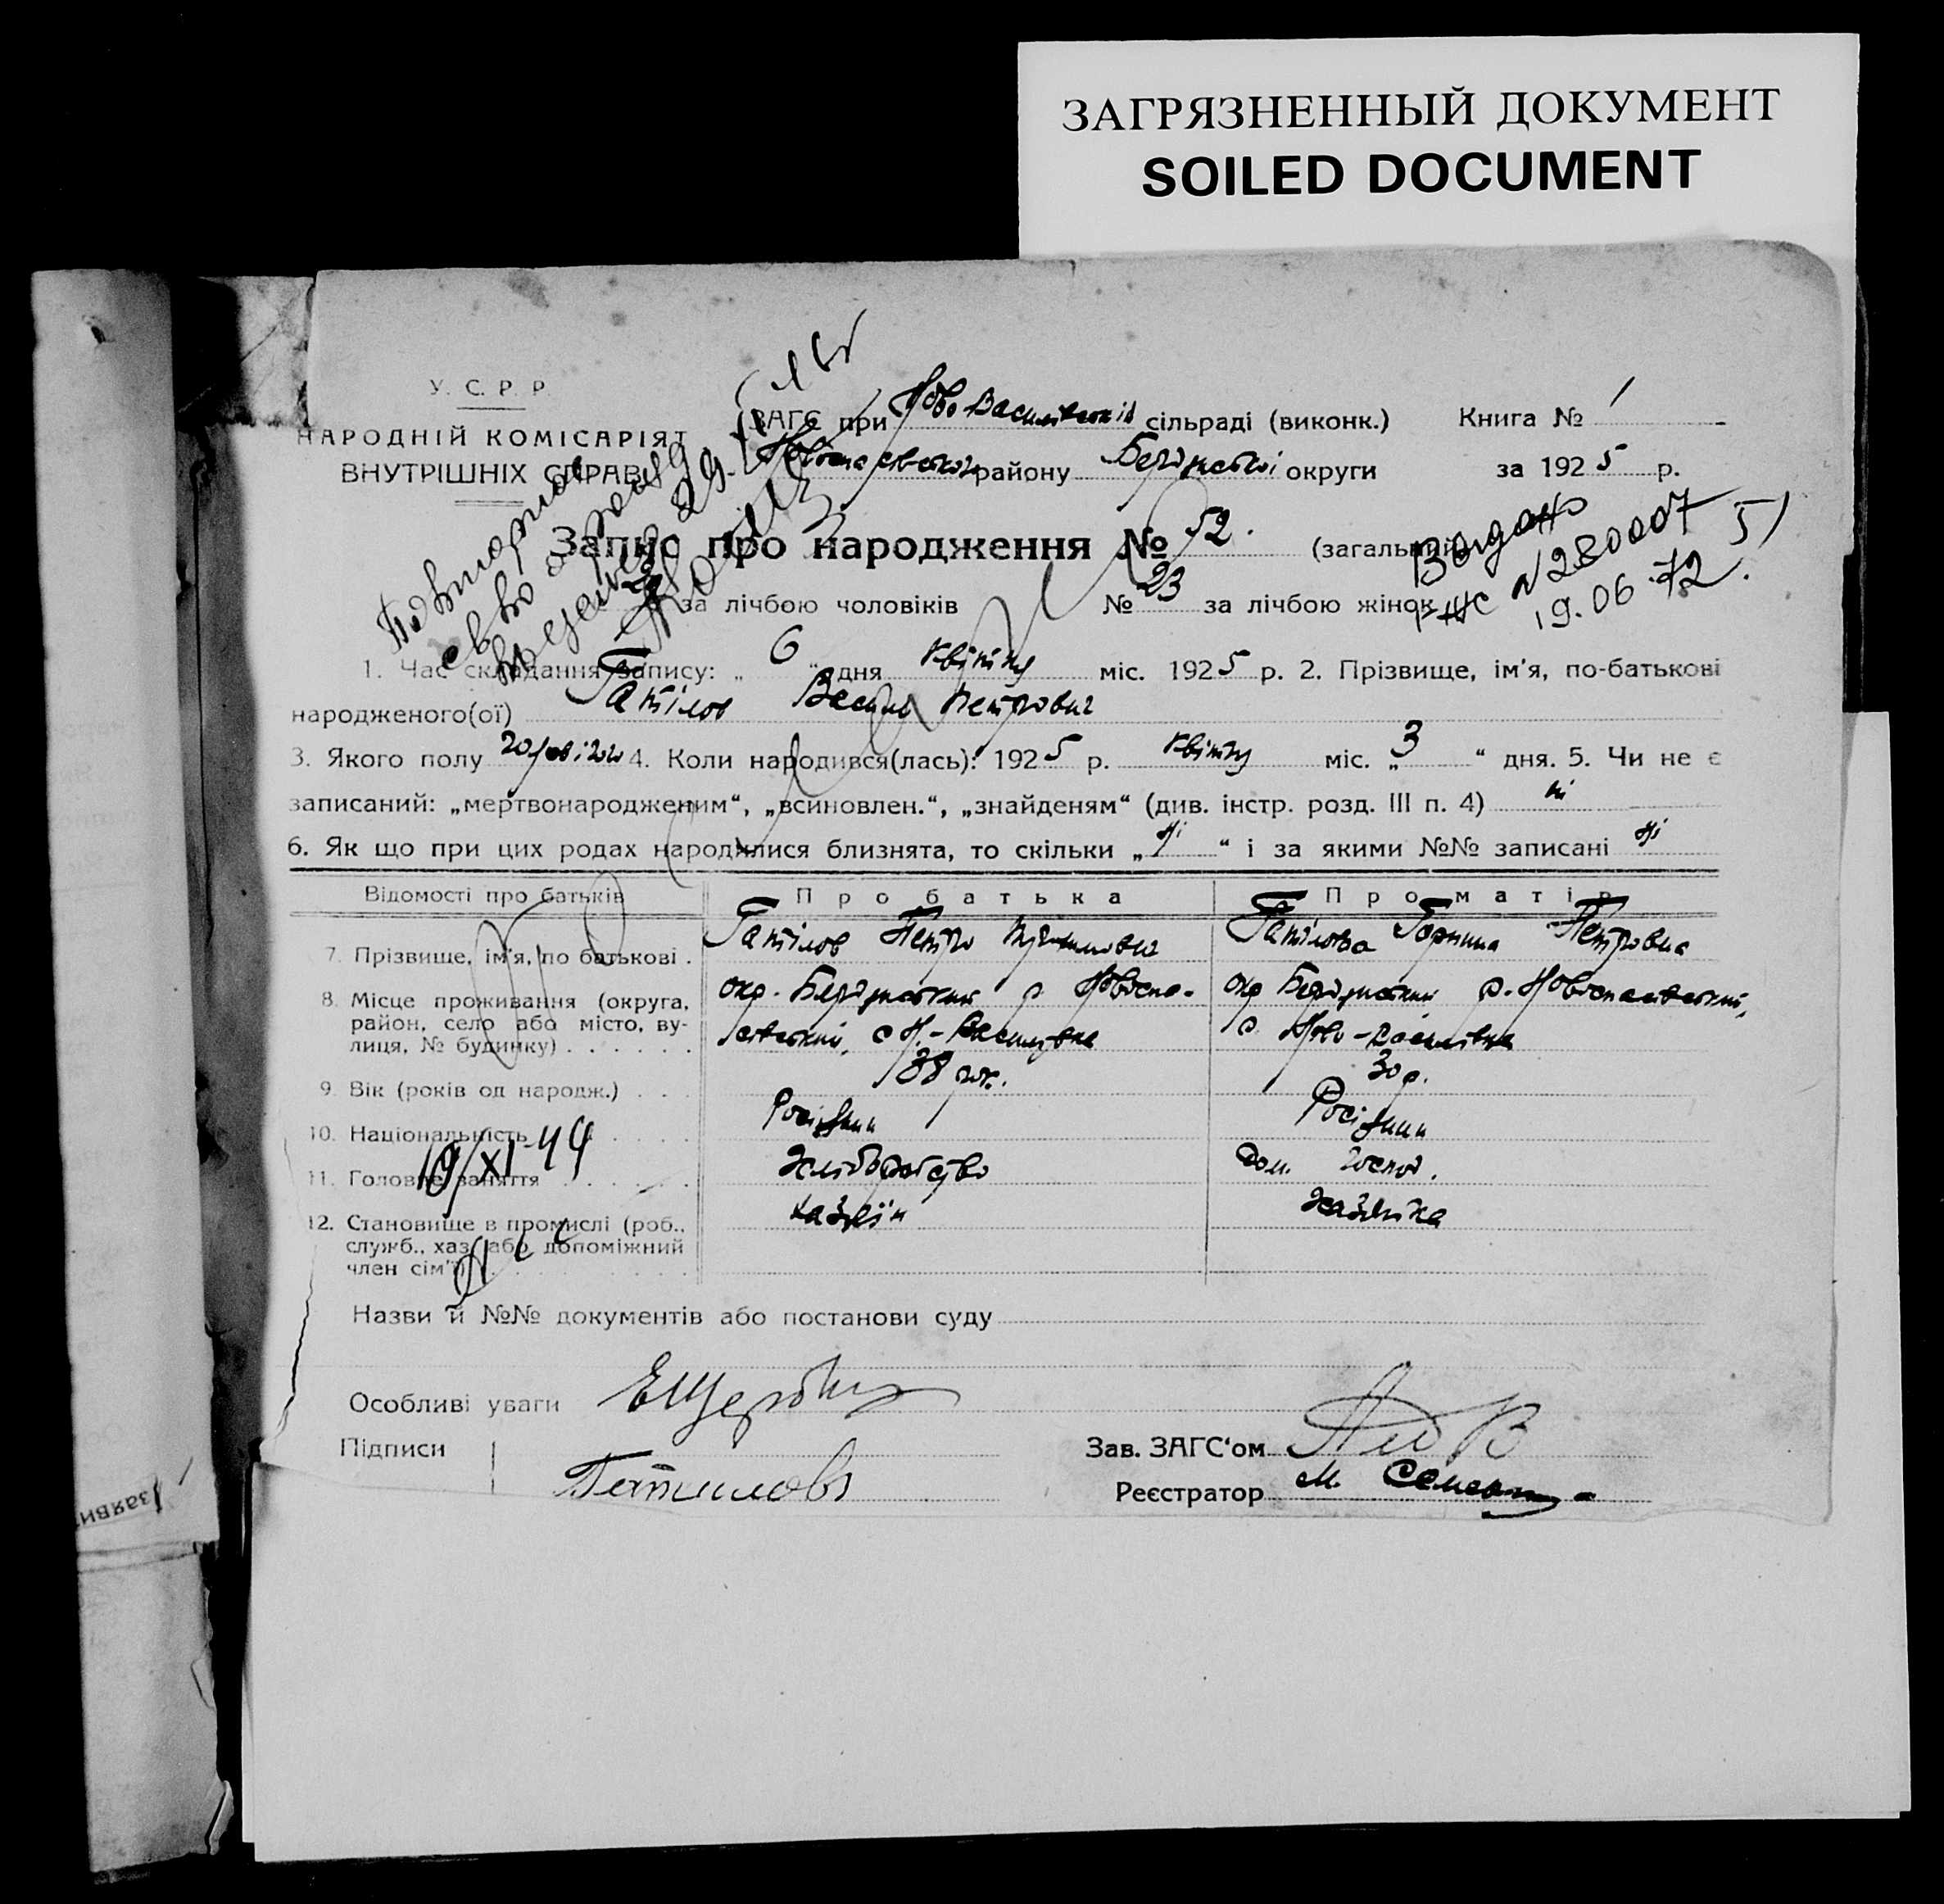 ЗАГРЯЗНЕННЫЙ ДОКУМЕНТ
SOILED DOCUMENT
У. С. Р. Р.
НАРОДНІЙ КОМІСАРІЯТ
ВНУТРІШНІХ СПРАВ
ЗАГС при Ново Василівській сільраді (виконк.) Книга № 1
району Бердянської округи за 1925 р.
Запис про народження № 52. (загальний)
за лічбою чоловіків № 23 за лічбою жінок
Видано
№ 280007
19.06.72.
51
Повторное
св во о рожд
1. Час складання запису: „ 6 “ дня квітня міс. 1925 р. 2. Прізвище, ім’я, по-батькові
народженого(ої) Гатілов Василь Петрович
3. Якого полу чоловічого 4. Коли народився(лась): 1925 р. квітня міс. „ 3 “ дня. 5. Чи не є
записаний: „мертвонародженим“, „всиновлен.“, „знайденям“ (див. інстр. розд. III п. 4) ні
6. Як що при цих родах народилися близнята, то скільки „ ні “ і за якими №№ записані ні
Відомості про батьків Про батька Про матір
7. Прізвище, ім’я, по батькові . Гатілов Петро Гатілова Петровна
8. Місце проживання (округа, район, село або місто, вулиця, № будинку) окр. Бердянський р. Новоспасівський, с Н.-Василівка окр Бердянський р. Новоспасівський, с. Ново-Василівка
9. Вік (років од народж.) 38 рок. 30 р.
10. Національність Росіянин
11. Головне заняття Хліборобство Дом. господ.
12. Становище в промислі (роб., служб., хаз. або допоміжний член сім’ї) хазяїн хазяйка
19/XI-44
Назви й №№ документів або постанови суду
Особливі уваги
Підписи Гатилов Зав. ЗАГС‘ом
Реєстратор М.